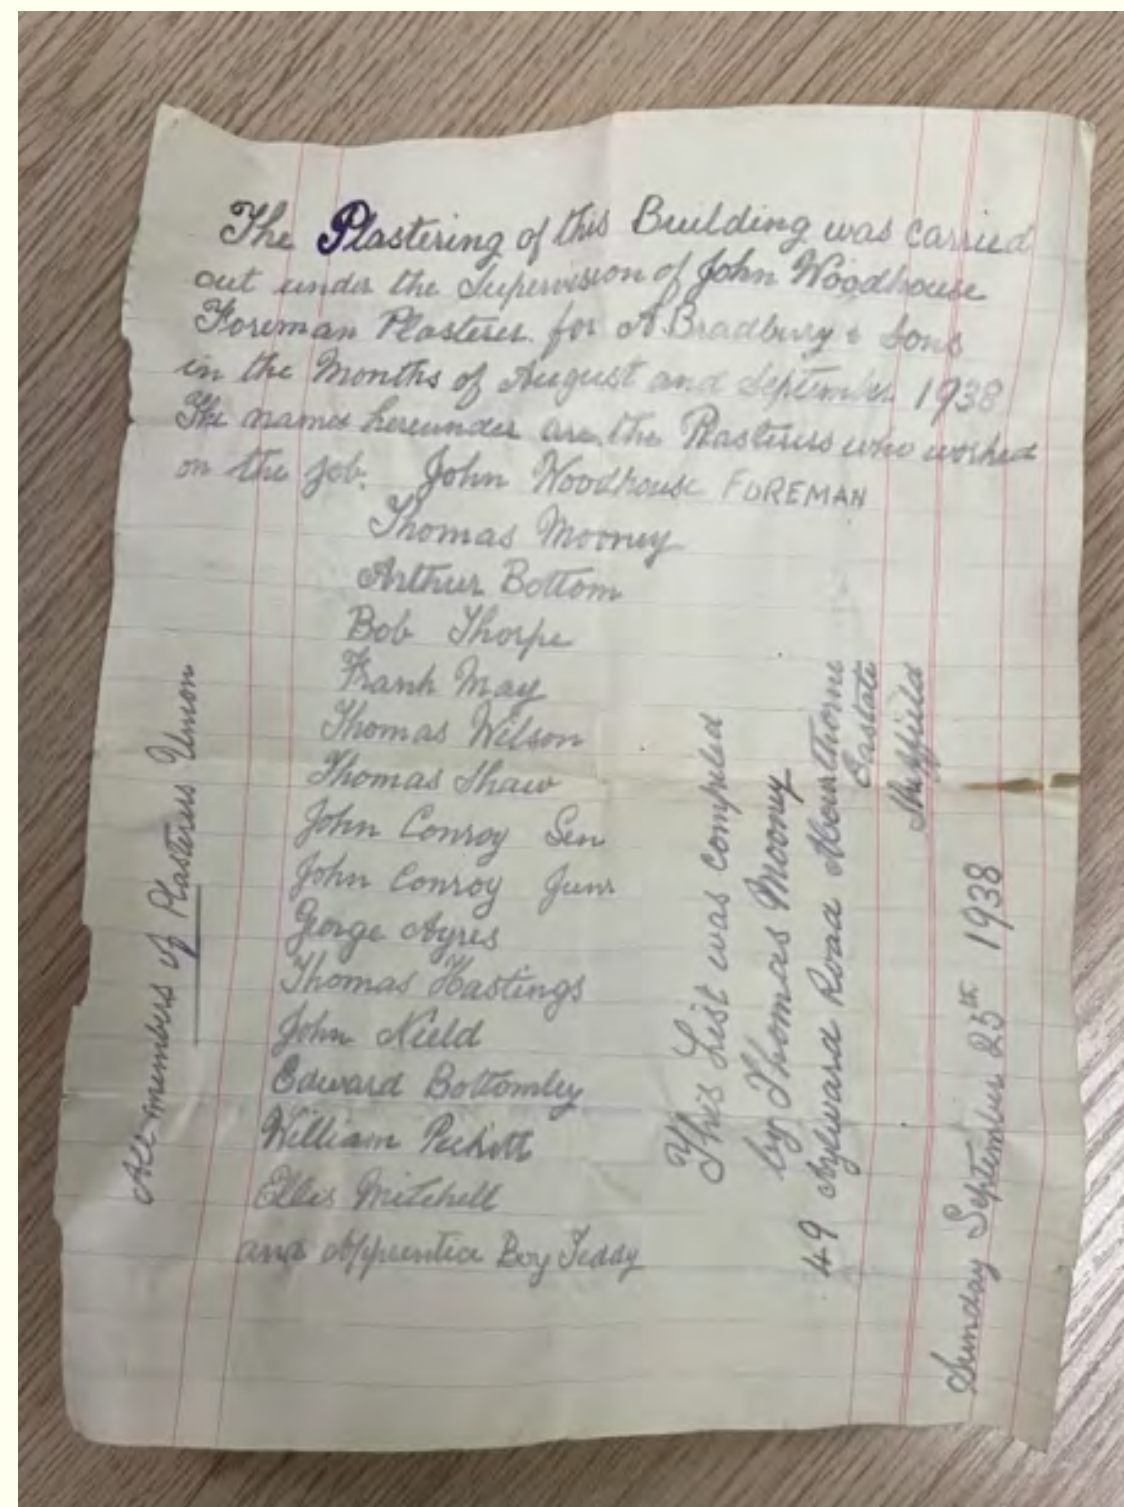 The Plastering of this Building was carried
out under the Supervision of John Woodhouse
Foreman Plasterer for A Bradbury & Sons
in the Months of August and September 1938
The names hereunder are the Plasterers who worked
on the job. John Woodhouse FOREMAN
Thomas Mooney
Arthur Bottom
Bob Thorpe
Frank May
Thomas Wilson
Thomas Shaw
John Conroy Sen
John Conroy Junr
George Ayres
Thomas Hastings
John Nield
Edward Bottomley
William Peckitt
Ellis Mitchell
and Apprentice Boy Teddy
All members of Plasterers Union
This List was compiled
by Thomas Mooney
49 Aylward Road Arbourthorne
Eastate
Sheffield
Sunday September 25th 1938